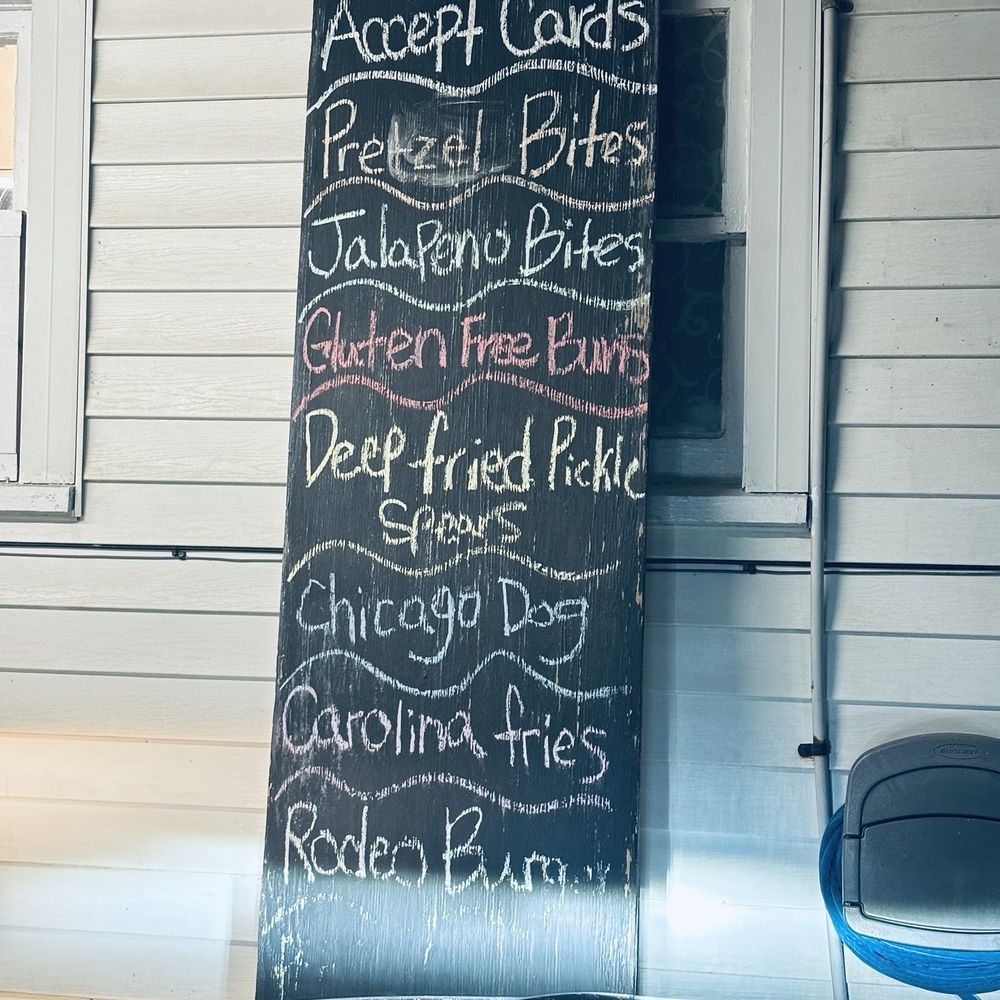 Accept Cards
Pretzel Bites
Jalapeno Bites
Gluten Free Buns
Deep fried Pickle
Spears
Chicago Dog
Carolina fries
Rodeo
SUNCAST